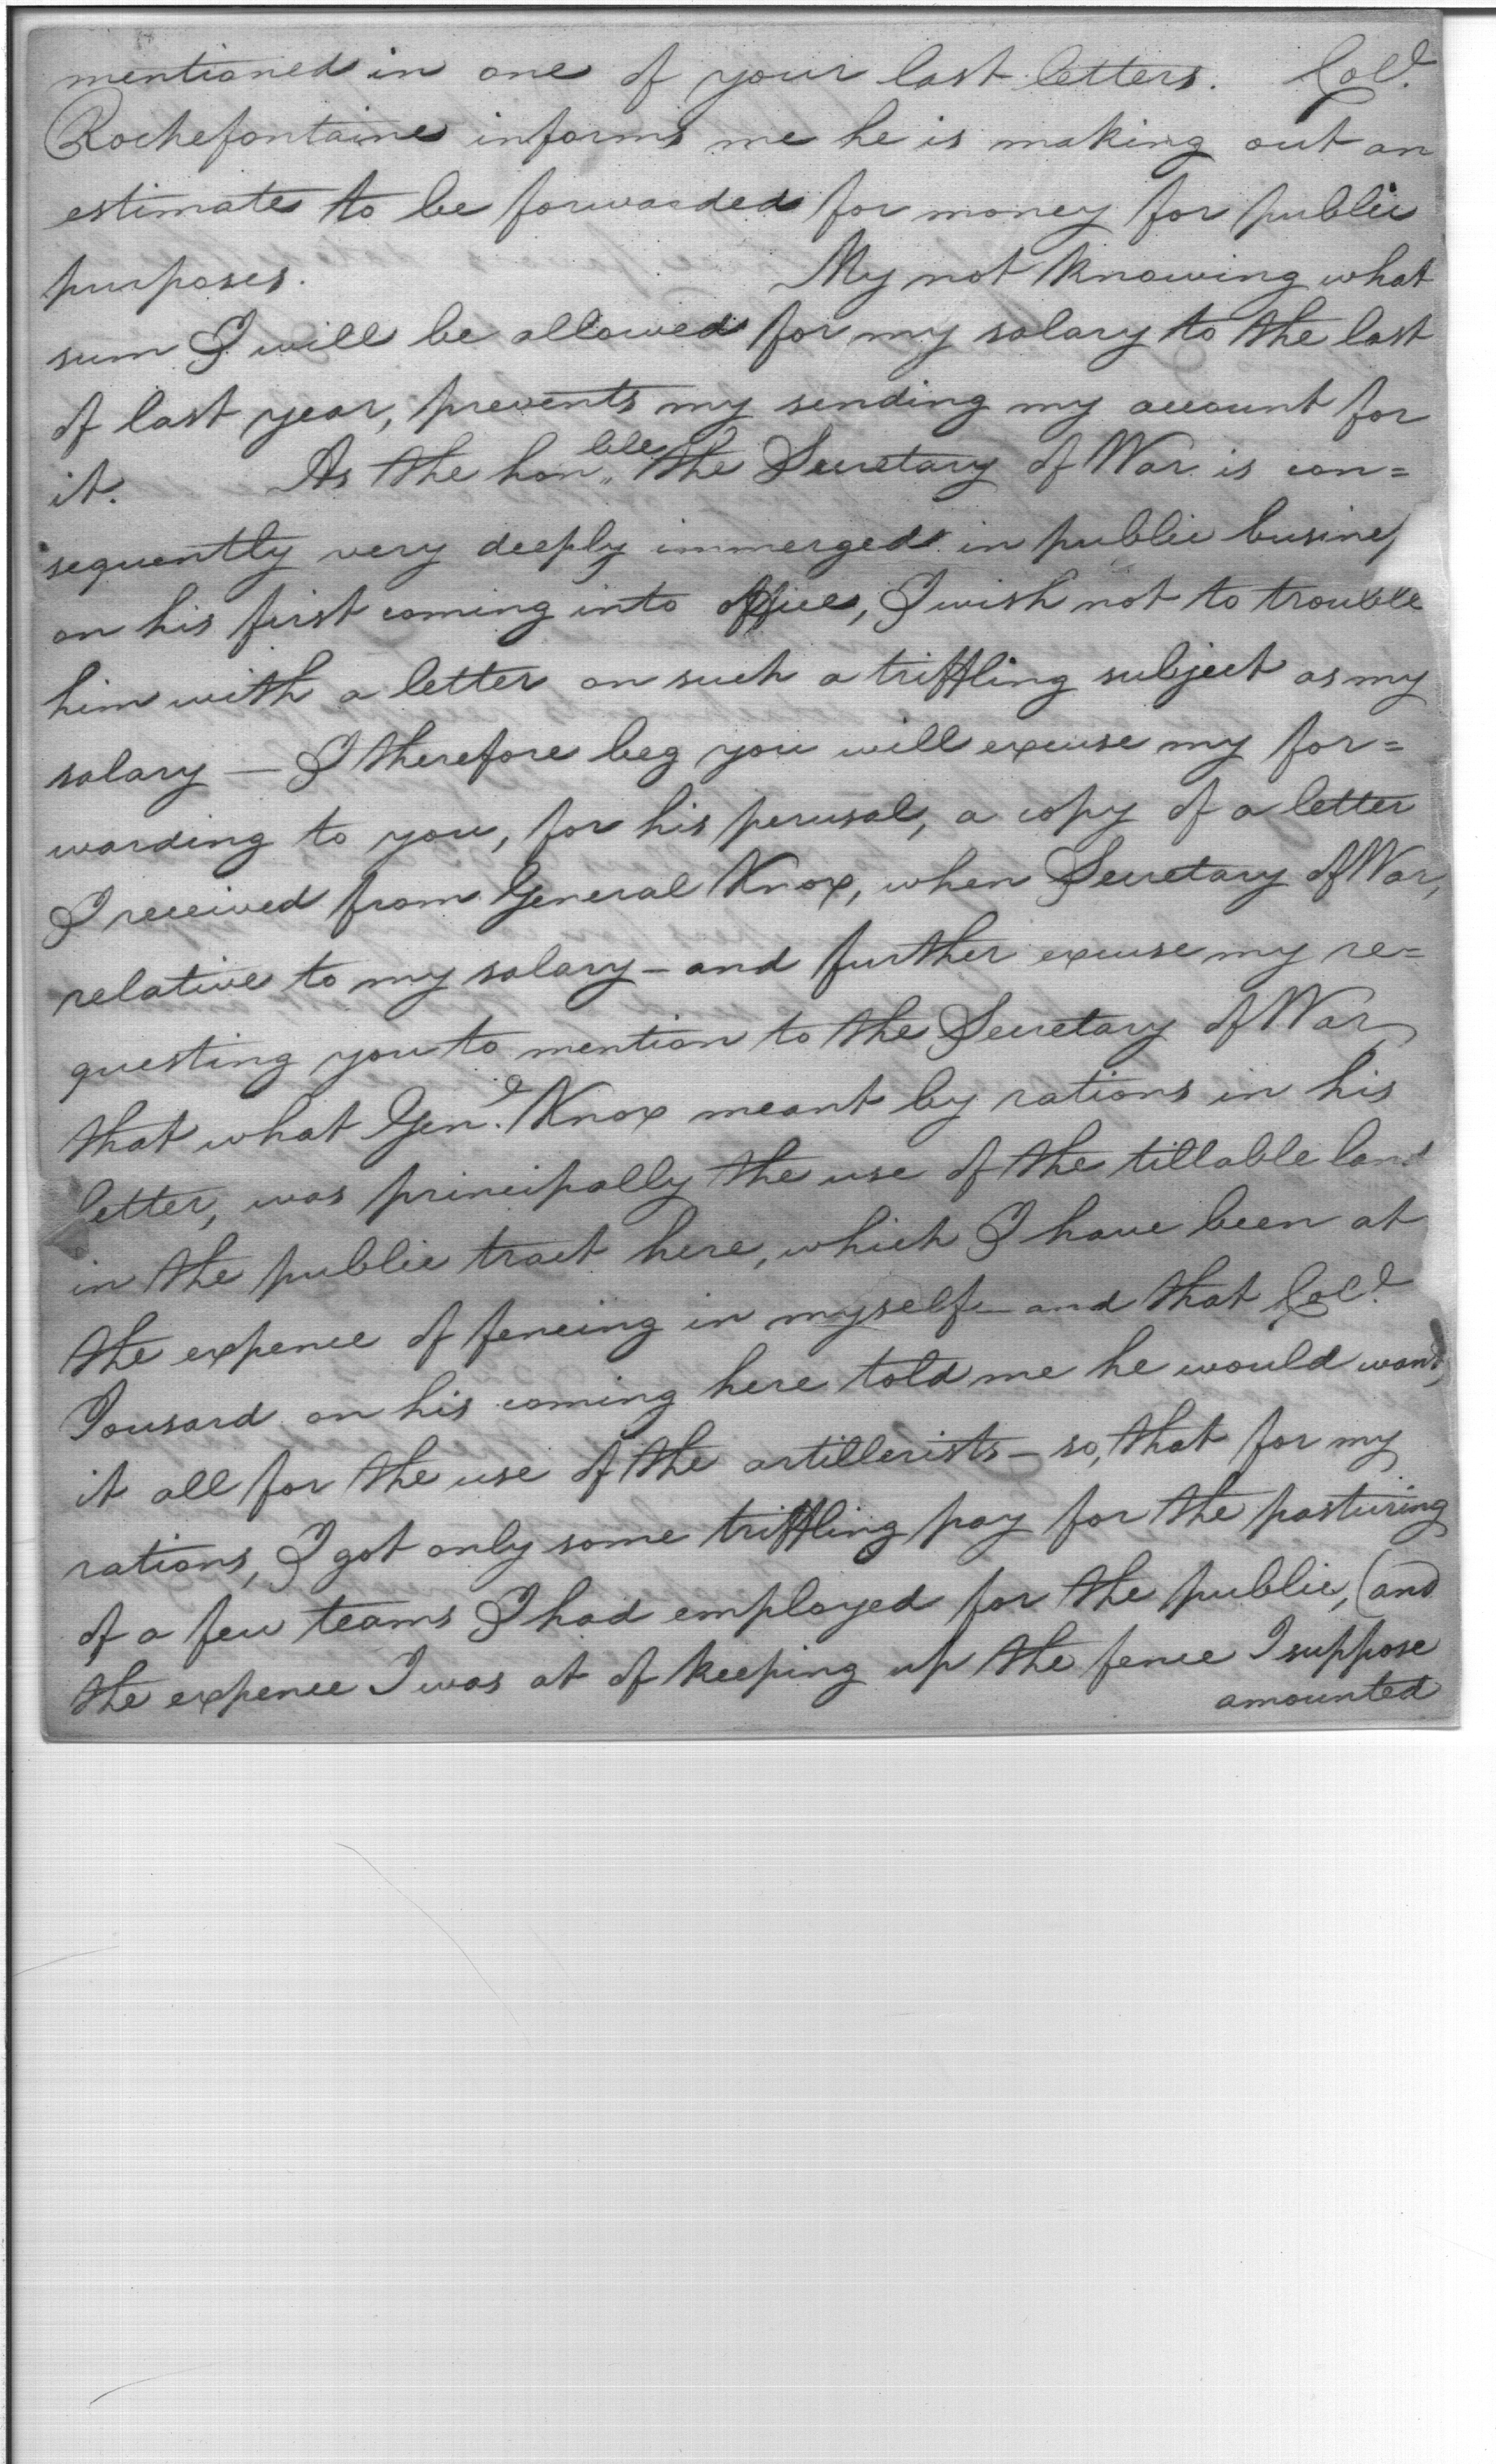 mentioned in one of your last letters. Col.
Rochefontaine informs me he is making out an
estimate to be forwarded for money for public
purposes. My not knowing what
sum I will be allowed for my salary to the last
of last year, prevents my sending my account for
it. As the honble the Secretary of War is con=
sequently very deeply immerged in public busines
on his first coming into office, I wish not to trouble
him with a letter on such a triffling subject as my
salary — I therefore beg you will excuse my for=
warding to you, for his perusal, a copy of a letter
I received from General Knox, when Secretary of War,
relative to my salary – and further excuse my re=
questing you to mention to the Secretary of War,
that what Genl. Knox meant by rations in his
letter, was principally the use of the tillable land
in the public tract here, which I have been at
the expence of fencing in myself – and that Col.
Tousard on his coming here told me he would want,
it all for the use of the artillerists – so, that for my
rations, I got only some triffling pay for the pasturing
of a few teams I had employed for the public, (and
the expence I was at of keeping up the fence I suppose
amounted